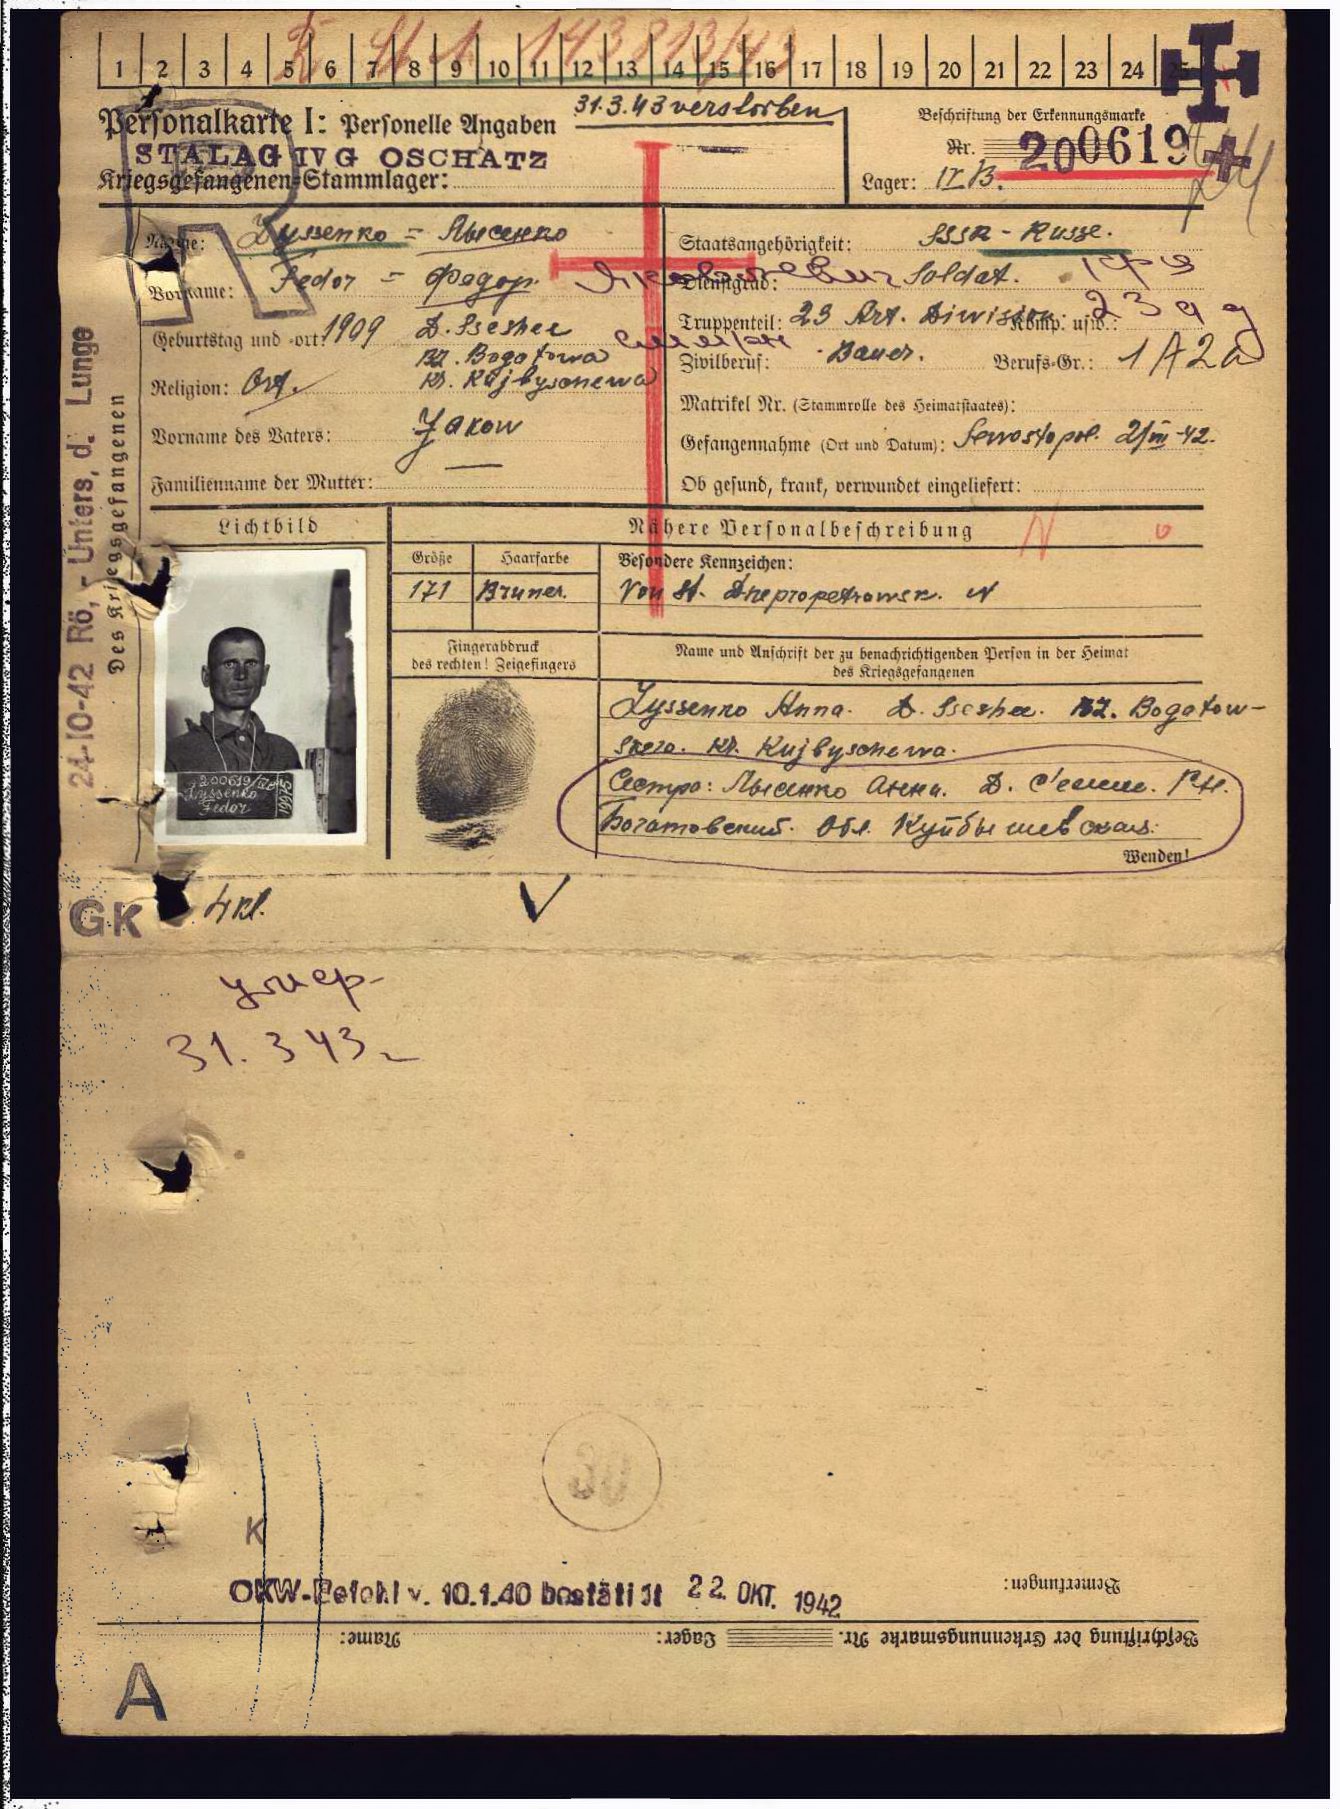 1 2 3 4 5 6 7 8 9 10 11 12 13 14 15 16 17 18 19 20 21 22 23 24 25
143813/43
31.3.43 verstorben
Personalkarte I: Personelle Angaben
STALAG IV G OSCHATZ
Kriegsgefangenen-Stammlager:
Beschriftung der Erkennungsmarke
Nr. 200619
Lager: IV B.
Des Kriegsgefangenen
24-10-42 Rö.- Unters. d. Lunge
Name: Lyssenko = Лысенко
Vorname: Fedor = Федор. Яковлевич
Geburtstag und -ort: 1909 D. Sseshee
Bz. Bogatowa
Kr. Kujbyschewa
Religion: Ort.
Vorname des Vaters: Jakow
Familienname der Mutter: —
Staatsangehörigkeit: SSSR - Russe.
Dienstgrad: Soldat.
Truppenteil: 23 Art. Division Komp. usw.:
Zivilberuf: Bauer. Berufs-Gr.: 1 A 2a
Matrikel Nr. (Stammrolle des Heimatstaates):
Gefangennahme (Ort und Datum): Sewostopol. 2/VII-42.
Ob gesund, krank, verwundet eingeliefert:
Lichtbild
Nähere Personalbeschreibung
Größe Haarfarbe
171 Bruner.
Besondere Kennzeichen:
Von St. Dnepropetrowsk. N
Fingerabdruck
des rechten! Zeigefingers
Name und Anschrift der zu benachrichtigenden Person in der Heimat
des Kriegsgefangenen
Lyssenko Anna. D. Sseshee. Bz. Bogatow-
skero. Kr. Kujbyschewa.
Сестра: Лысенко Анна. Д. Р-н.
Богатовский. Обл. Куйбышевская.
Wenden!
200619/IVB
Lyssenko
Fedor
GK 4 Kl. V
умер
31.3 43
30
K
OKW-Befehl v. 10.1.40 bestätigt 22. OKT. 1942
Bemerkungen:
Beschriftung der Erkennungsmarke Nr. Lager: Name:
A